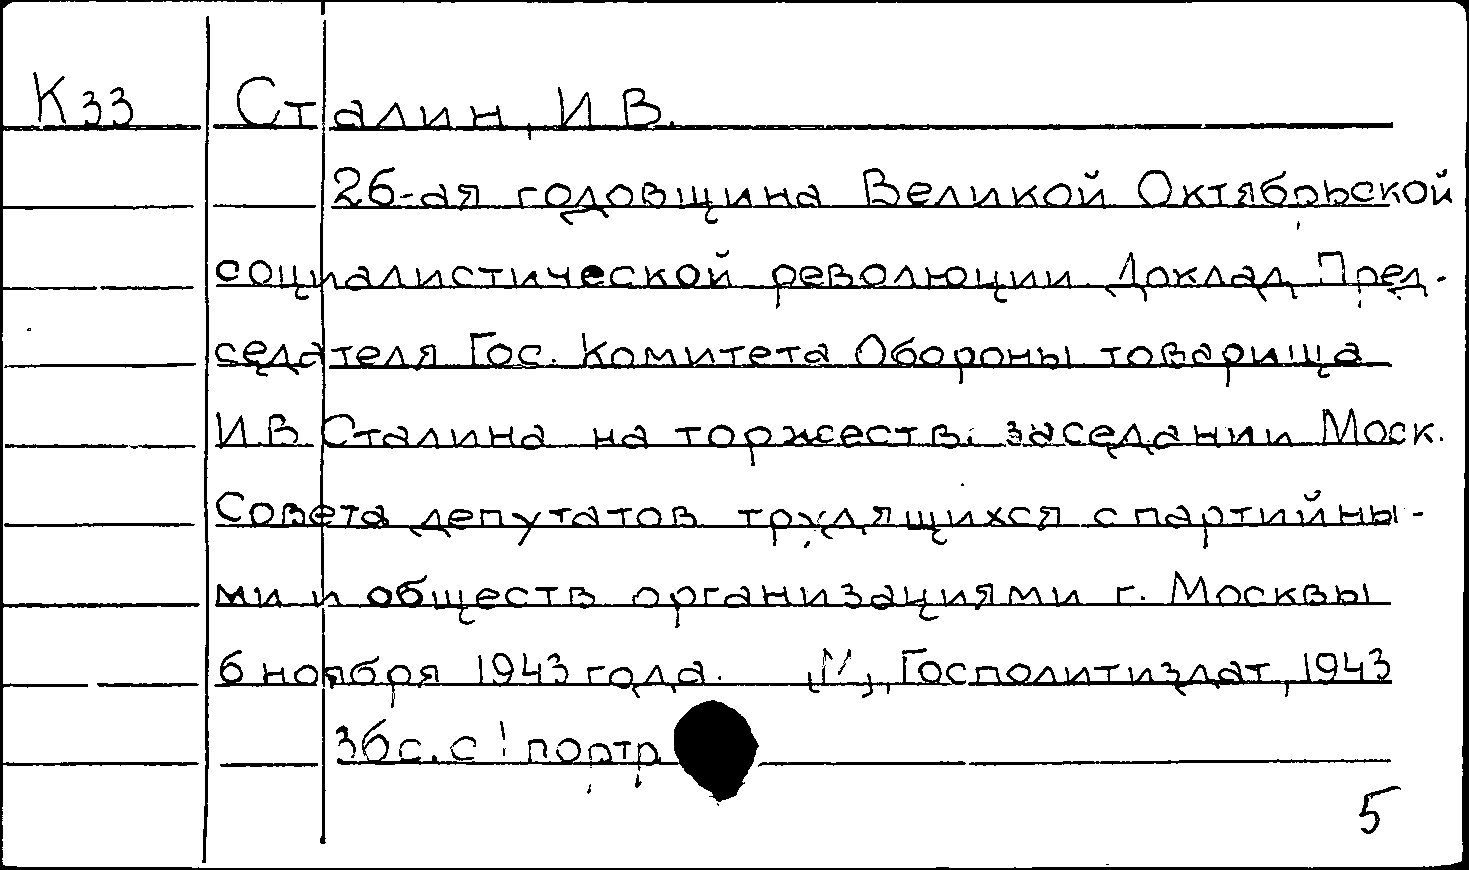 К33 Сталин, И.В.
26-ая годовщина Великой Октябрьской
социалистической революции. Доклад Пред-
седателя Гос. Комитета Обороны товарища
И.В. Сталина на торжеств. заседании Моск.
Совета депутатов трудящихся с партийны-
ми и обществ организациями г. Москвы
6 ноября 1943 года. [М], Госполитиздат, 1943
36с. с 1 портр
5